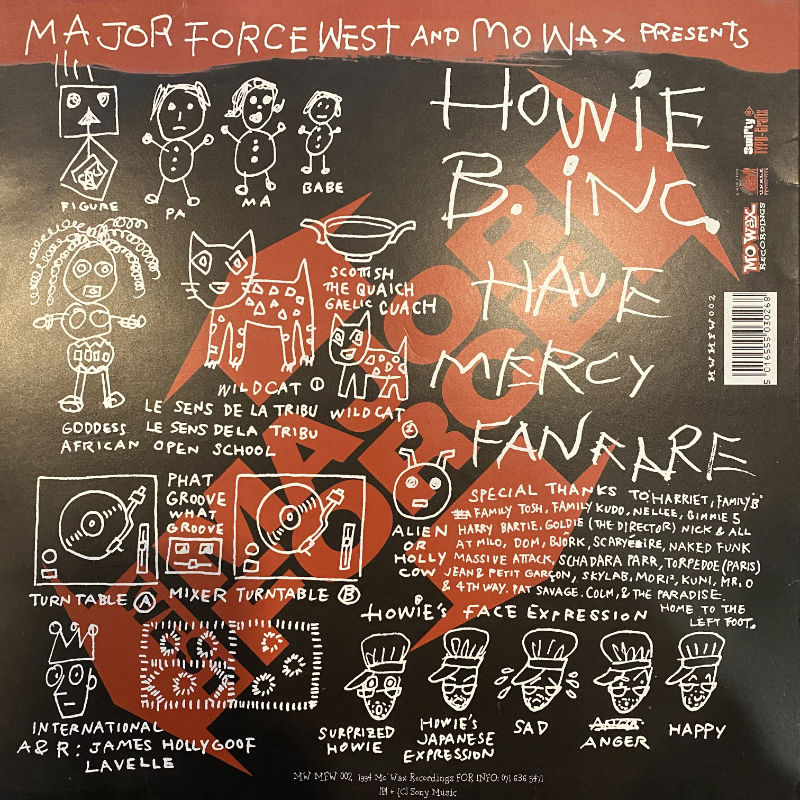 MAJOR FORCE WEST AND MO WAX PRESENTS
HOWIE
B. iNC.
HAVE
MERCY
FANFARE
FIGURE
PA
MA
BABE
SCOTTISH
THE QUAICH
GAELIC CUACH
WILDCAT ①
WILDCAT
②
GODDESS
AFRICAN
LE SENS DE LA TRIBU
LE SENS DE LA TRIBU
OPEN SCHOOL
MAJOR FORCE
Swifty
TYPO-GRAFIX
MO WAX
RECORDINGS
MWMFW002
5 016555 030268
PHAT
GROOVE
WHAT
GROOVE
TURNTABLE Ⓐ
MIXER
TURNTABLE Ⓑ
ALIEN
OR
HOLLY
COW
SPECIAL THANKS TO HARRIET, FAMILY B'
FAMILY TOSH, FAMILY KUDO, NELLEE, GIMMIE 5
HARRY BARTIE. GOLDIE (THE DIRECTOR) NICK & ALL
AT MILO, DOM, BJORK, NAKED FUNK
MASSIVE ATTACK, SCHADARA PARR, TORPEDOE (PARIS)
JEAN & PETIT GARÇON, SKYLAB, MORI², KUNI, MR. O
& 4TH WAY. PAT SAVAGE. COLM, & THE PARADISE.
HOME TO THE
LEFT FOOT.
HOWIE'S FACE EXPRESSION
SURPRIZED
HOWIE
HOWIE'S
JAPANESE
EXPRESSION
SAD
ANGER
HAPPY
INTERNATIONAL
A&R: JAMES HOLLYGOOF
LAVELLE
MW MFW 002, 1994 Mo' Wax Recordings FOR INFO: 071 636 5411
(P) + (C) Sony Music